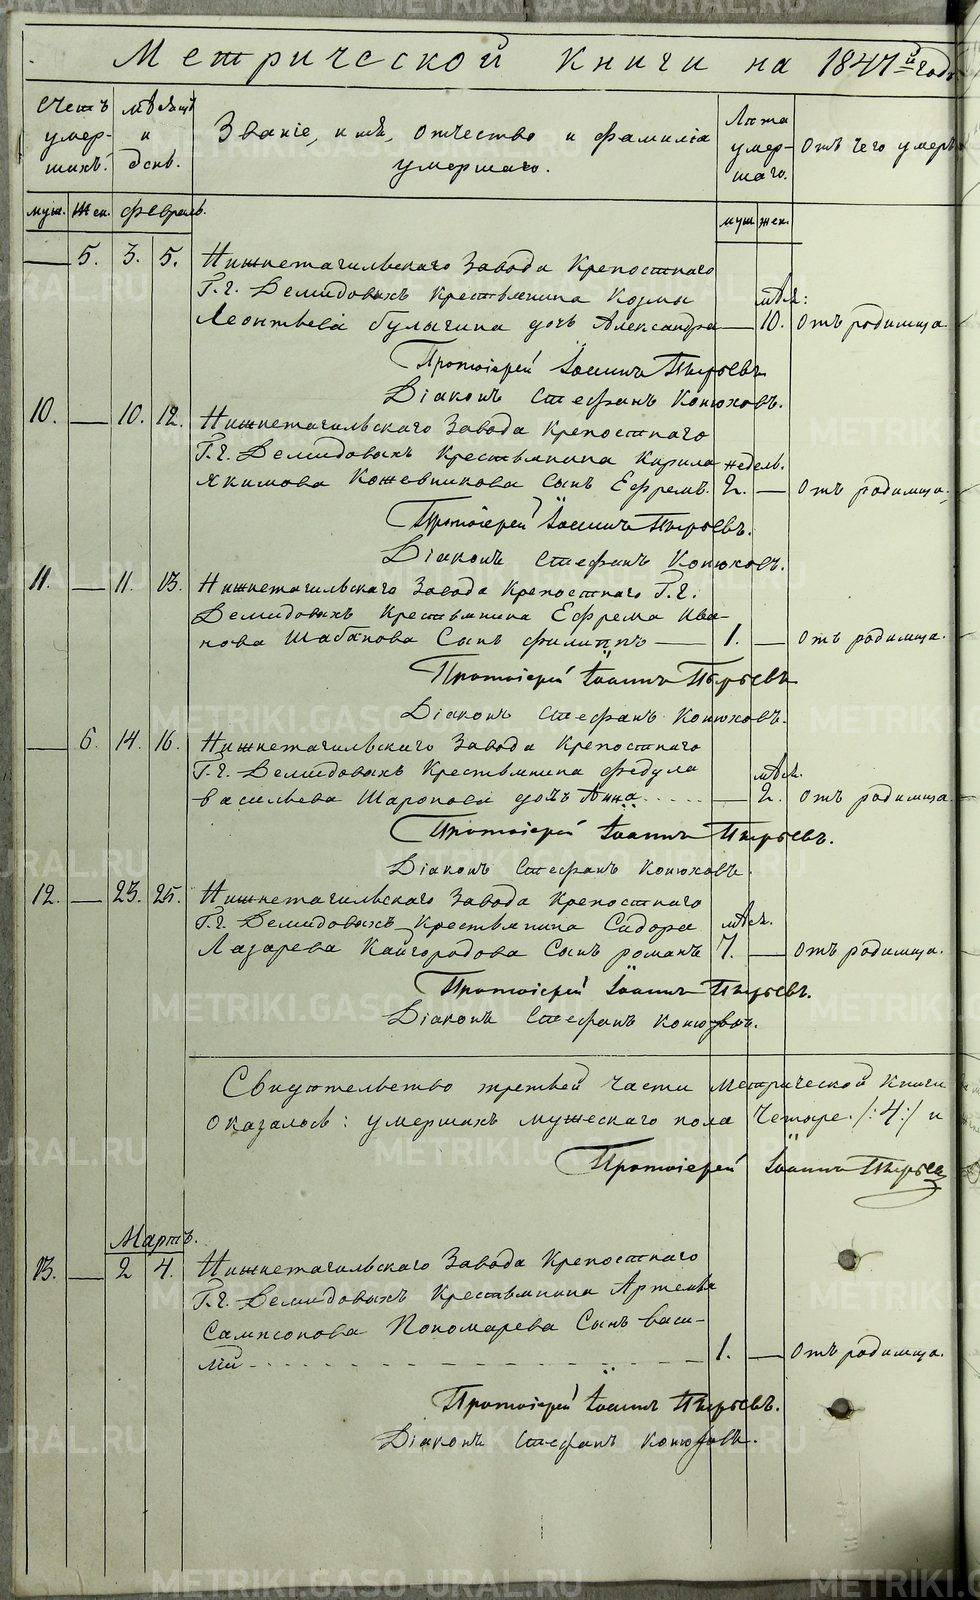 Метрической книги на 1847й годъ
Счетъ умер- шихъ.
Мѣсяцъ и день.
Званіе, имя, отчество и фамилія умершаго.
Лѣта умер- шаго.
Отъ чего умеръ
муж. жен. Февраль. муж. жен.
— 5. 3. 5. Нижнетагильскаго Завода Крепостнаго
Г.г. Демидовыхъ Крестьянина Козмы мѣс:
Леонтьева Булыгина дочь Александра — 10. Отъ родимца.
Протоіерей Іоаннъ Пырьевъ
Діаконъ Стефанъ Конюховъ.
10. — 10. 12. Нижнетагильскаго Завода Крепостнаго
Г.г. Демидовыхъ Крестьянина Кирила недель.
Якимова Кожевникова сынъ Ефремъ. 2. — Отъ родимца.
Протоіерей Іоаннъ Пырьевъ.
Діаконъ Стефанъ Конюховъ.
11. — 11. 13. Нижнетагильскаго Завода Крепостнаго Г.г.
Демидовыхъ Крестьянина Ефрема Ива-
нова Шабанова Сынъ Филиппъ — 1. — Отъ родимца.
Протоіерей Іоаннъ Пырьевъ
Діаконъ Стефанъ Конюховъ.
— 6. 14. 16. Нижнетагильскаго Завода Крепостнаго
Г.г. Демидовыхъ Крестьянина Федула мѣс.
Васильева Шаропова дочь Анна — 2. Отъ родимца
Протоіерей Іоаннъ Пырьевъ.
Діаконъ Стефанъ Конюховъ.
12. — 23. 25. Нижнетагильскаго Завода Крепостнаго
Г.г. Демидовыхъ Крестьянина Сидора мѣс.
Лазарева Кайгородова Сынъ романъ 7. — Отъ родимца.
Протоіерей Іоаннъ Пырьевъ.
Діаконъ Стефанъ Конюховъ.
Свидѣтельство третьей части Метрической Книги
оказалось: умершихъ мужескаго пола Четыре /:4:/ и
Протоіерей Іоаннъ Пырьев
Мартъ.
13. — 2 4. Нижнетагильскаго Завода Крепостнаго
Г.г. Демидовыхъ Крестьянина Артемья
Сампсонова Пономарева Сынъ Васи-
лій 1. — Отъ родимца.
Протоіерей Іоаннъ Пырьевъ.
Діаконъ Стефанъ Конюховъ.
METRIKI.GASO-URAL.RU